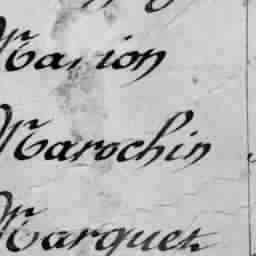 Marion
Marochin
Marquet